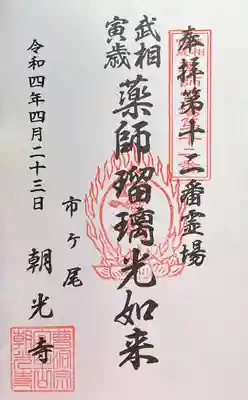 奉拝第十二番霊場
武相
寅歳
薬師瑠璃光如来
市ヶ尾
朝光寺
令和四年四月二十三日